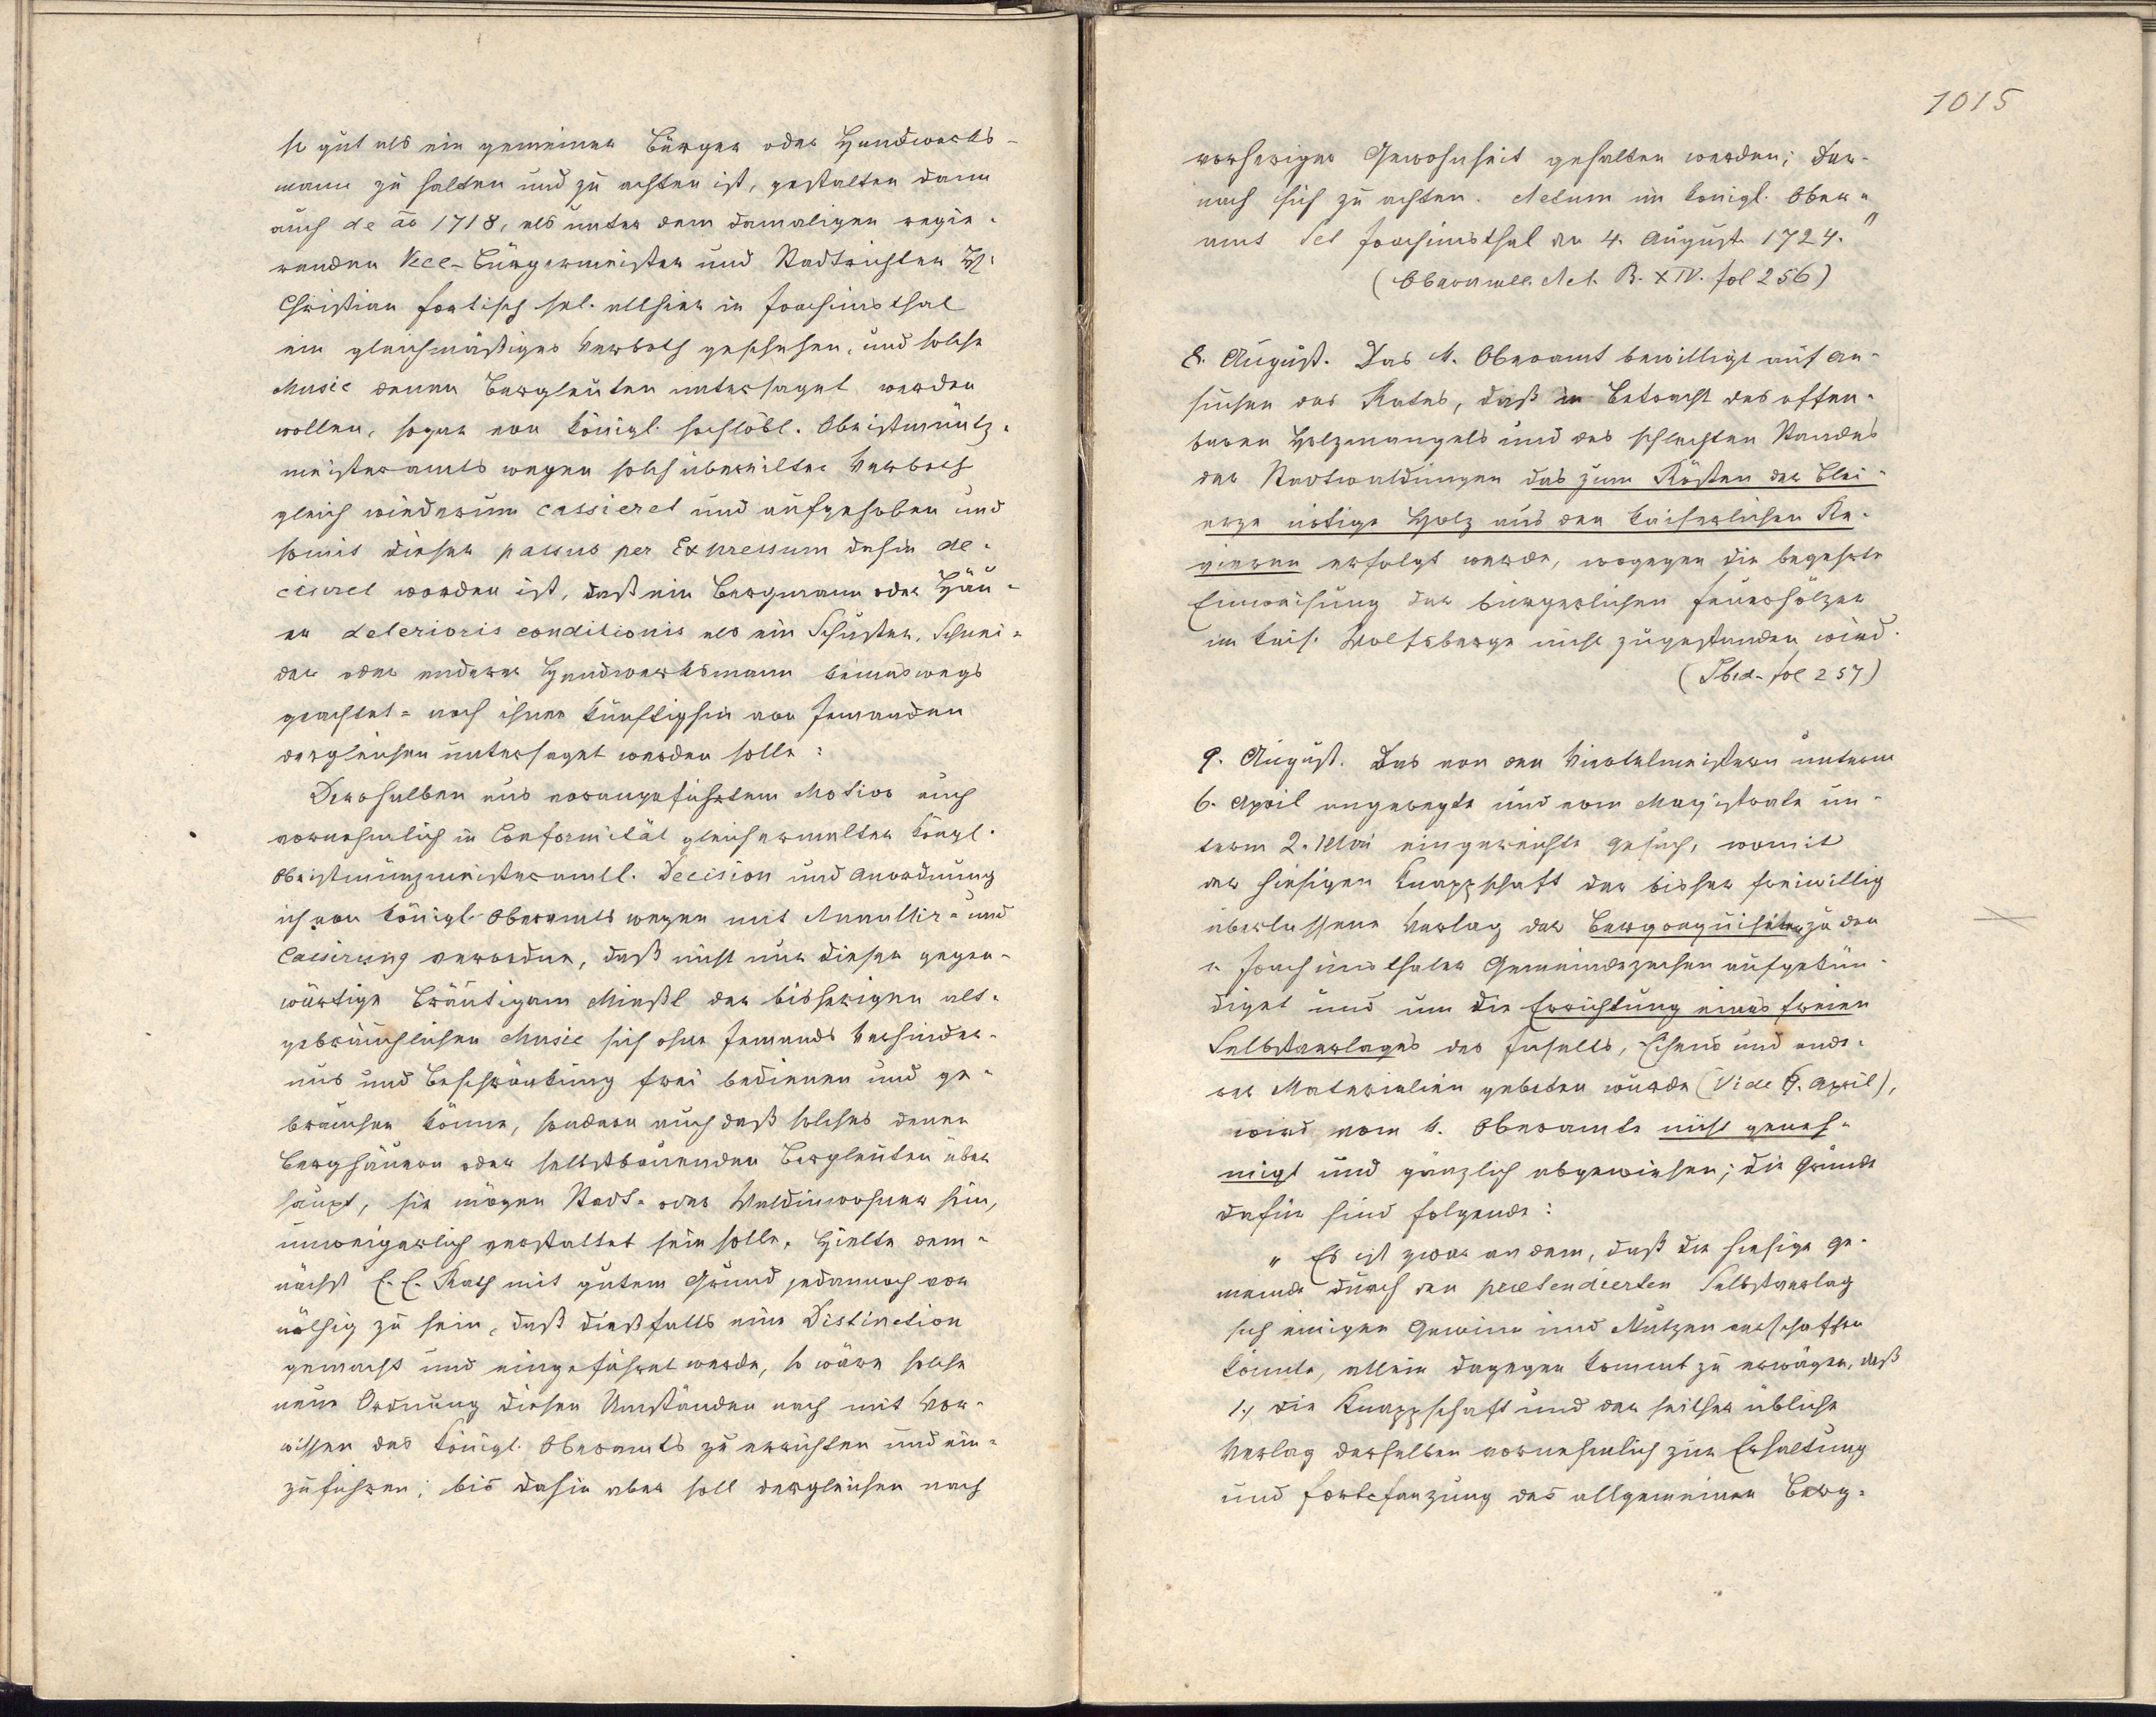 so gut als ein gemeiner Bürger oder Handwerks-
mann zu halten und zu achten ist, gestalten dann
auch de ão 1718, als unter dem damaligen regie-
renden Vice-Bürgermeister und Stadtrichter H:
Christian sel. allhier in Joachimsthal
ein gleichmäßiges Verboth geschehen, und solche
Music denen Bergleuten untersaget werden
wollen, sogar von königl. hochlöbl. Obristmüntz-
meisteramts wegen solch übereiltes Verboth
gleich wiederum cassieret und aufgehoben und
somit dieser passus per Expressum dahin de-
cisiret worden ist, daß ein Bergmann oder Häu-
er deterioris conditionis als ein Schuster, Schnei-
der oder anderer Handwerksmann keineswegs
geachtet- noch ihnen künftighin von Jemanden
dergleichen untersaget werden solle:
Derohalben aus vorangeführtem Motivo auch
vornehmlich in Conformität gleicherwelter königl.
Obristmünzmeisteramtl. Decision und Anordnung
ich von königl. Oberamts wegen mit Annullir- und
Cassirung verordne, daß nicht nur dieser gegen-
wärtige Bräutigam Mießl der bisherigen alt-
gebräuchlichen Music sich ohne Jemands Verhinder-
nus und Beschränkung frei bedienen und ge-
brauchen könne, sondern auch daß solches denen
Berghäuern oder selbstbauenden Bergleuten über
haupt, sie mögen Stadt- oder Waldinwohner sein,
unweigerlich verstattet sein solle. Hielte dem-
nächst E. E. Rath mit gutem Grund jedannoch vor
nöthig zu sein, daß dießfalls eine Distinction
gemacht und eingeführet werde, so wäre solche
neue Ordnung diesen Umständen nach mit Vor-
wissen des königl. Oberamts zu errichten und ein-
zuführen; bis dahin aber soll dergleichen nach
1015
vorheriger Gewohnheit gehalten werden; dar-
nach sich zu achten. Actum im königl. Ober-
amt Sct Joachimsthal den 4. August 1724."
(Oberamtl. Act. B. XIV. fol 256)
8. August. Das k. Oberamt bewilligt auf An-
suchen des Rates, daß in Betracht des offen-
baren Holzmangels und des schlechten Standes
der Stadtwaldungen das zum Rösten der Blei-
erze nötige Holz aus den kaiserlichen Re-
vieren erfolgt werde, wogegen die begehrte
Einweisung der bürgerlichen Feuerhölzer
im kais. Wolfsberge nicht zugestanden wird.
(Ibid. fol 257)
9. August. Das von den Viertelmeistern unterm
6. April angeregte und vom Magistrate un-
term 2. Mai eingereichte Gesuch, womit
der hiesigen Knappschaft der bisher freiwillig
überlassene Verlag der Bergrequisiten zu den
Joachimsthaler Gemeindezechen aufgekün-
diget und um die Errichtung eines freien
Selbstverlages des Inselts, Eisens und ande-
rer Materialien gebeten wurde (Vide 6. April),
wird vom k. Oberamte nicht geneh-
migt und gänzlich abgewiesen; die Gründe
dafür sind folgende:
„Es ist zwar an dem, daß die hiesige Ge-
meinde durch den praetendierten Selbstverlag
sich einigen Gewinn und Nutzen verschaffen
könnte, allein dagegen kommt zu erwägen, daß
1., die Knappschaft und der seither übliche
Verlag derselben vornehmlich zur Erhaltung
und Fortpflanzung des allgemeinen Berg-